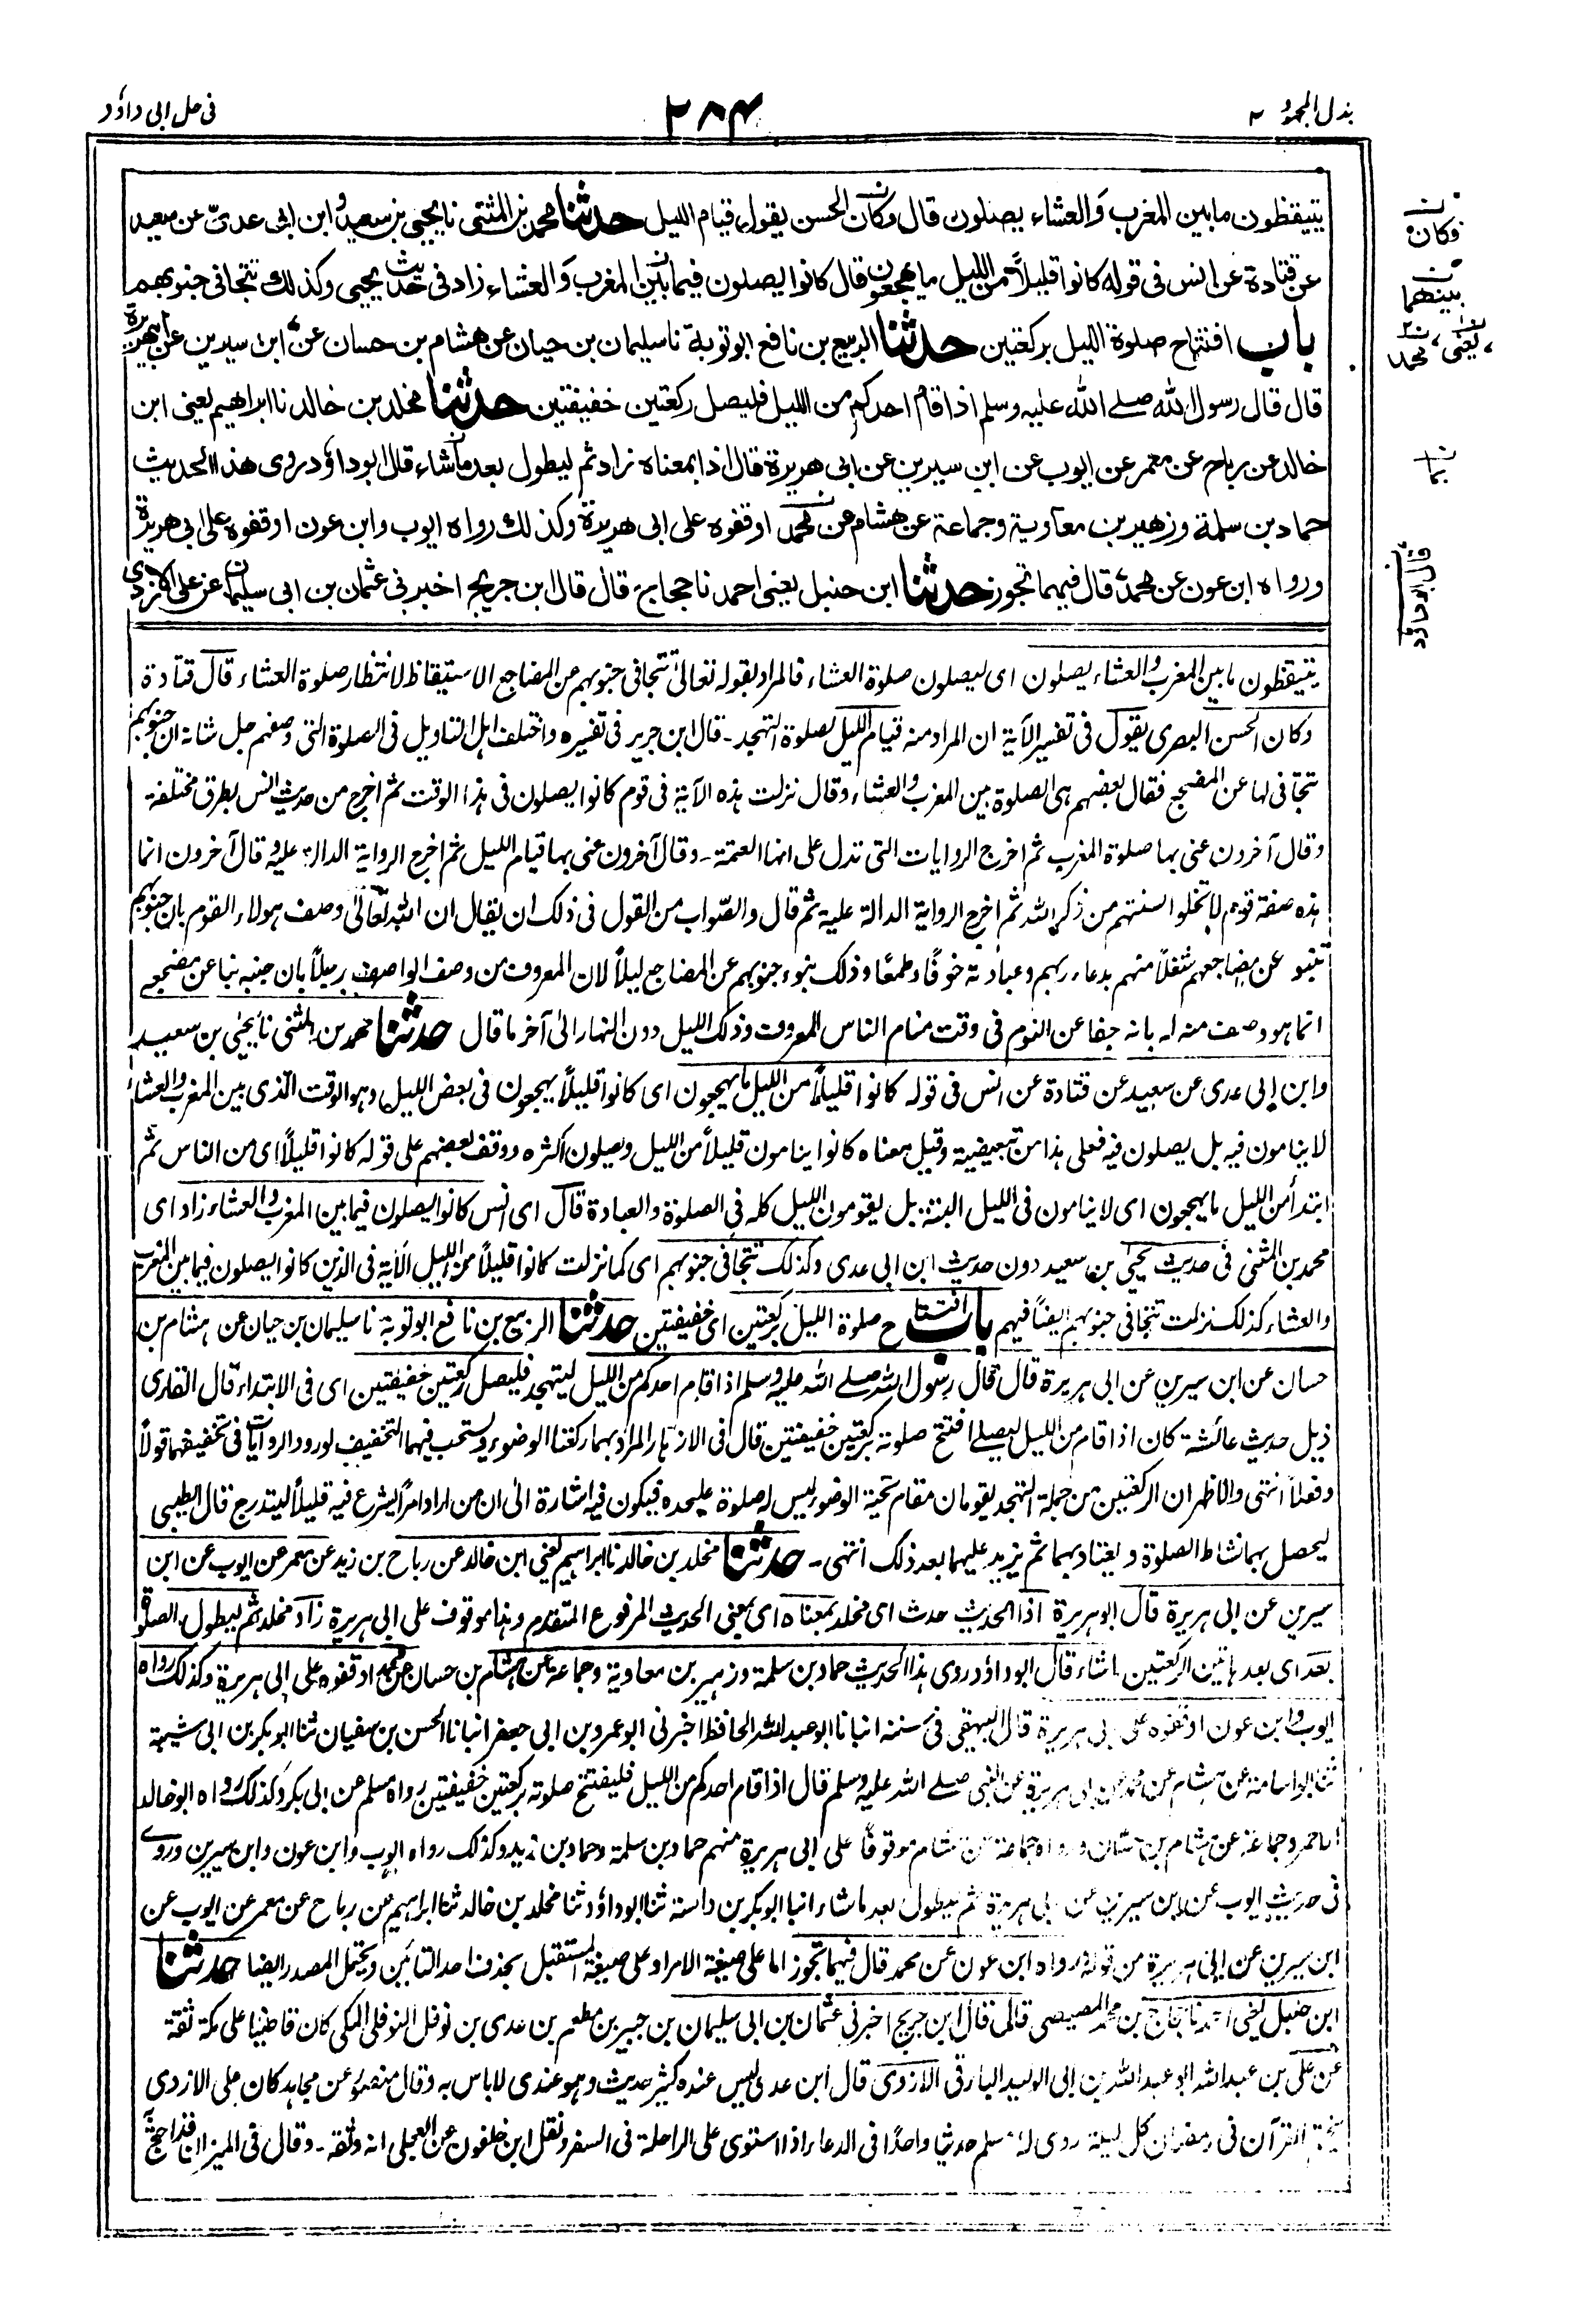 بذل المجهود ٢
٢٨٤
فى حل ابى داؤد
يتيقظون ما بين المغرب والعشاء يصلون قال وكان الحسن يقول قيام الليل حدثنا محمد بن المثنى نا يحيى بن سعيد وابن ابى عدى عن سعيد
عن قتادة عن انس فى قوله كانوا قليلاً من الليل ما يهجعون قال كانوا يصلون فيما بين المغرب والعشاء زاد فى حديث يحيى وكذلك تتجافى جنوبهم
باب افتتاح صلوة الليل بركعتين حدثنا الربيع بن نافع ابو توبة نا سليمان بن حيان عن هشام بن حسان عن ابن سيرين عن ابى هريرة
قال قال رسول الله صلى الله عليه وسلم اذا قام احدكم من الليل فليصل ركعتين خفيفتين حدثنا مخلد بن خالد نا ابراهيم يعنى ابن
خالد عن رباح عن معمر عن ايوب عن ابن سيرين عن ابى هريرة قال اذا بمعناه زاد ثم ليطول بعد ما شاء قال ابو داؤد روى هذا الحديث
حماد بن سلمة وزهير بن معاوية وجماعة عن هشام عن محمد اوقفوه على ابى هريرة وكذلك رواه ايوب وابن عون اوقفوه على ابى هريرة
ورواه ابن عون عن محمد قال فيهما تجوز حدثنا ابن حنبل يعنى احمد نا حجاج قال قال ابن جريج اخبرنى عثمان بن ابى سليمان عن على الازدى
وكان
بينهما
يعنى محمد
بما
قال ابو داؤد
يتيقظون ما بين المغرب والعشاء يصلون اى ليصلون صلوة العشاء فالمراد بقوله تعالى تتجافى جنوبهم عن المضاجع الاستيقاظ لانتظار صلوة العشاء قال قتادة
وكان الحسن البصرى يقول فى تفسير الآية ان المراد منه قيام الليل بصلوة التهجد ـ قال ابن جرير فى تفسيره واختلف اهل التاويل فى الصلوة التى وصفهم جل شانه ان جنوبهم
تتجافى لها عن المضجع فقال بعضهم هى الصلوة بين المغرب والعشاء وقال نزلت هذه الآية فى قوم كانوا يصلون فى هذا الوقت ثم اخرج من حديث انس بطرق مختلفة ـ
وقال آخرون عنى بها صلوة المغرب ثم اخرج الروايات التى تدل على انها العتمة ـ وقال آخرون عنى بها قيام الليل ثم اخرج الرواية الدالة عليه وقال آخرون انما
هذه صفة قوم لا تخلوا السنتهم من ذكر الله ثم اخرج الرواية الدالة عليه ثم قال والصواب من القول فى ذلك ان يقال ان الله تعالى وصف هولاء القوم بان جنوبهم
تنبو عن مضاجعهم شغلاً منهم بدعاء ربهم وعبادته خوفًا وطمعًا وذلك نبوء جنوبهم عن المضاجع ليلاً لان المعروف من وصف الواصف رجلاً بان جنبه نبا عن مضجعه
انما هو وصف منه له بانه جفا عن النوم فى وقت منام الناس المعروف وذلك الليل دون النهار الى آخر ما قال حدثنا محمد بن المثنى نا يحيى بن سعيد
وابن ابى عدى عن سعيد عن قتادة عن انس فى قوله كانوا قليلاً من الليل ما يهجعون اى كانوا قليلاً يهجعون فى بعض الليل وهو الوقت الذى بين المغرب والعشاء
لا ينامون فيه بل يصلون فيه فعلى هذا من تبعيضية وقيل معناه كانوا ينامون قليلاً من الليل ويصلون اكثره ووقف بعضهم على قوله كانوا قليلاً اى من الناس ثم
ابتدأ من الليل ما يهجعون اى لا ينامون فى الليل البتة بل يقومون الليل كله فى الصلوة والعبادة قال اى انس كانوا يصلون فيما بين المغرب والعشاء زاد اى
محمد بن المثنى فى حديث يحيى بن سعيد دون حديث ابن ابى عدى وكذلك تتجافى جنوبهم اى كما نزلت كانوا قليلاً من الليل الآية فى الذين كانوا يصلون فيما بين المغرب
والعشاء كذلك نزلت تتجافى جنوبهم ايضًا فيهم باب افتتاح صلوة الليل بركعتين اى خفيفتين حدثنا الربيع بن نافع ابو توبة نا سليمان بن حيان عن هشام بن
حسان عن ابن سيرين عن ابى هريرة قال قال رسول الله صلى الله عليه وسلم اذا قام احدكم من الليل ليتهجد فليصل ركعتين خفيفتين اى فى الابتداء قال القارى
ذيل حديث عائشة كان اذا قام من الليل ليصلى افتتح صلوته بركعتين خفيفتين قال فى الازهار المراد بهما ركعتا الوضوء ويستحب فيهما التخفيف لورود الروايات فى تخفيفهما قولاً
وفعلاً انتهى والاظهر ان الركعتين من جملة التهجد يقومان مقام تحية الوضوء ليس له صلوة عليحده فيكون فيه اشارة الى ان من اراد امرًا يشرع فيه قليلاً ليتدرج قال الطيبى
ليحصل بهما نشاط الصلوة ويعتاد بهما ثم يزيد عليهما بعد ذلك انتهى ـ حدثنا مخلد بن خالد نا ابراهيم يعنى ابن خالد عن رباح بن زيد عن معمر عن ايوب عن ابن
سيرين عن ابى هريرة قال ابو هريرة اذا الحديث حدث اى مخلد بمعناه اى بمعنى الحديث المرفوع المتقدم وهذا موقوف على ابى هريرة زاد مخلد ثم ليطول الصلوة
بعد اى بعد هاتين الركعتين ما شاء قال ابو داؤد روى هذا الحديث حماد بن سلمة وزهير بن معاوية وجماعة عن هشام بن حسان عن محمد اوقفوه على ابى هريرة وكذلك رواه
ايوب وابن عون اوقفوه على ابى هريرة قال البيهقى فى سننه انبانا ابو عبد الله الحافظ اخبرنى ابو عمرو بن ابى جعفر انبانا الحسن بن سفيان ثنا ابو بكر بن ابى شيبة
ثنا ابو اسامة عن هشام عن محمد عن ابى هريرة عن النبى صلى الله عليه وسلم قال اذا قام احدكم من الليل فليفتتح صلوته بركعتين خفيفتين رواه مسلم عن ابى بكر وكذلك رواه ابو خالد
الاحمر وجماعة عن هشام بن حسان ورواه جماعة عن هشام موقوفًا على ابى هريرة منهم حماد بن سلمة وحماد بن زيد وكذلك رواه ايوب وابن عون وابن سيرين وروى
فى حديث ايوب عن ابن سيرين عن ابى هريرة ثم ليطول بعد ما شاء انبا ابو بكر بن داسة ثنا ابو داؤد ثنا مخلد بن خالد ثنا ابراهيم عن رباح عن معمر عن ايوب عن
ابن سيرين عن ابى هريرة من قوله ورواه ابن عون عن محمد قال فيهما تجوز اما على صيغة الامر او على صيغة المستقبل بحذف احد التائين ويحتمل المصدر ايضا حدثنا
ابن حنبل يعنى احمد نا حجاج بن محمد المصيصى قال قال ابن جريج اخبرنى عثمان بن ابى سليمان بن جبير بن مطعم بن عدى بن نوفل النوفلى المكى كان قاضيا على مكة ثقة
عن على بن عبد الله ابو عبد الله بن ابى الوليد البارقى الازدى قال ابن عدى ليس عنده كثير حديث وهو عندى لا باس به وقال منصور عن مجاهد كان على الازدى
يختم القرآن فى رمضان كل ليلة روى له مسلم حديثا واحدًا فى الدعاء اذا استوى على الراحلة فى السفر ونقل ابن خلفون عن العجلى انه وثقه ـ وقال فى الميزان